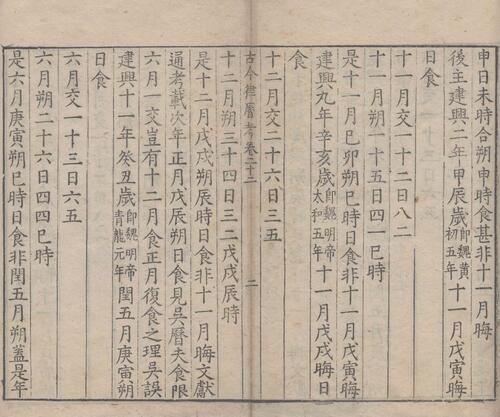 申日未時合朔申時食甚非十一月晦
後主建興二年甲辰歲即魏黃初五年十一月戊寅晦
日食
十一月交一十二日八二
十一月朔一十五日四一巳時
是十一月己卯朔巳時日食非十一月戊寅晦
建興九年辛亥歲即魏明帝太和五年十一月戊戌晦日
食
十二月交二十六日三五
古今律曆考卷二十二 二
十二月朔三十四日三二戊戌辰時
是十二月戊戌朔辰時日食非十一月晦文獻
通考載次年正月戊辰朔日食見吳曆夫食限
六月一交豈有十二月食正月復食之理吳誤
建興十一年癸丑歲即魏明帝青龍元年閏五月庚寅朔
日食
六月交一十三日六五
六月朔二十六日四四巳時
是六月庚寅朔巳時日食非閏五月朔蓋是年